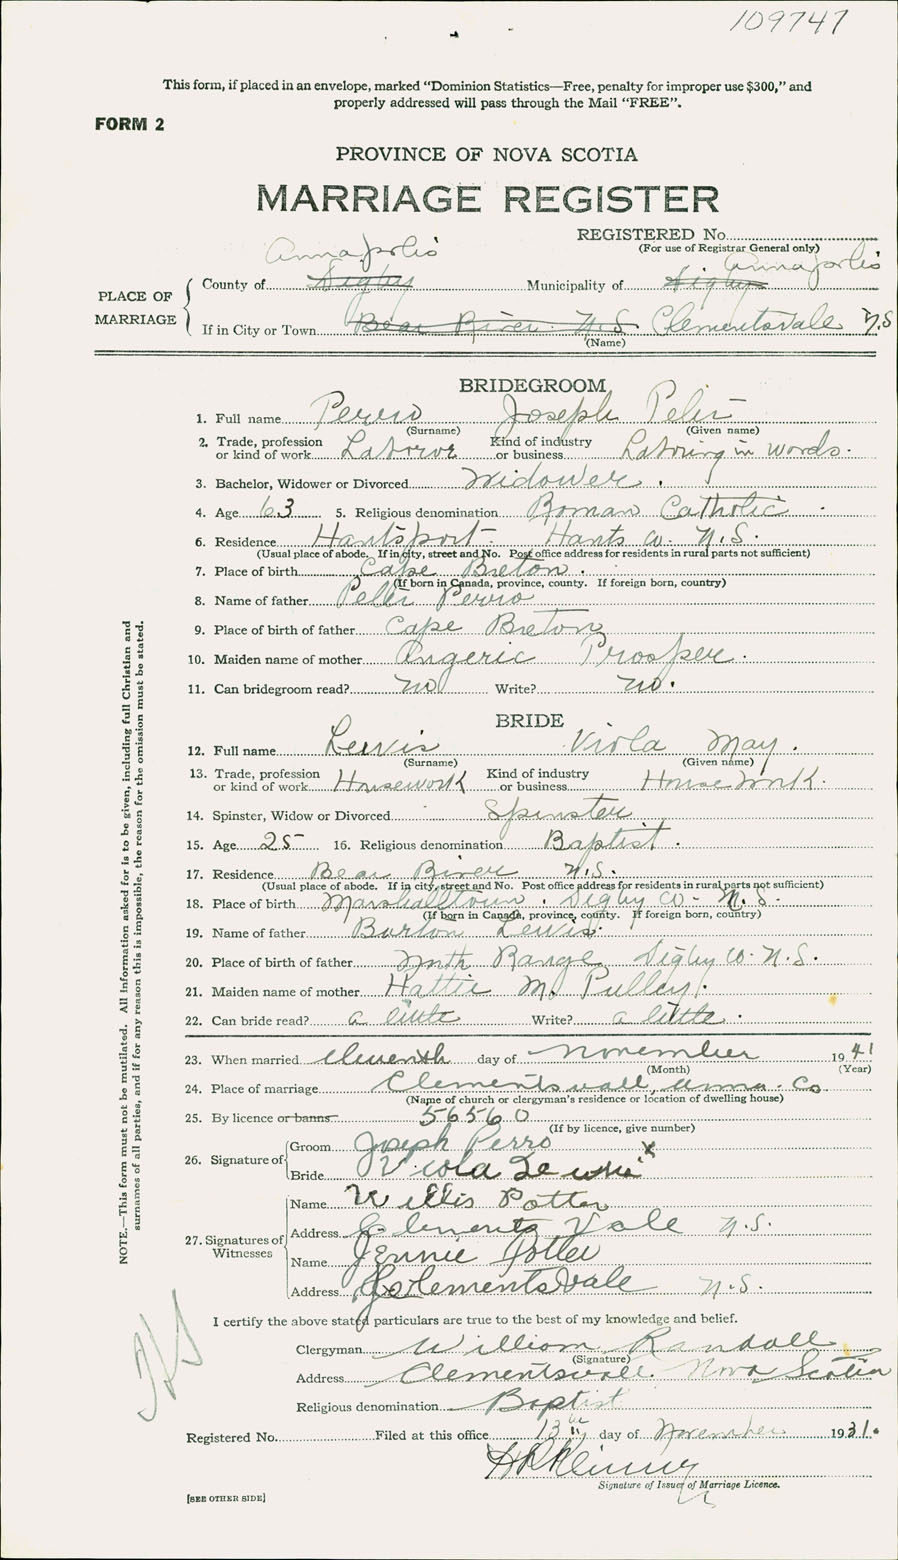 109747
This form, if placed in an envelope, marked "Dominion Statistics—Free, penalty for improper use $300," and
properly addressed will pass through the Mail "FREE".
FORM 2
PROVINCE OF NOVA SCOTIA
MARRIAGE REGISTER
REGISTERED No.
(For use of Registrar General only)
Annapolis Annapolis
PLACE OF MARRIAGE
County of Digby Municipality of Digby
If in City or Town Bear River N.S Clementsvale N.S
(Name)
BRIDEGROOM
1. Full name Perro Joseph Peter
(Surname) (Given name)
2. Trade, profession or kind of work Laborer Kind of industry or business Laboring in words.
3. Bachelor, Widower or Divorced Widower.
4. Age 63 5. Religious denomination Roman Catholic
6. Residence Hantsport Hants Co. N.S.
(Usual place of abode. If in city, street and No. Post office address for residents in rural parts not sufficient)
7. Place of birth Cape Breton.
(If born in Canada, province, county. If foreign born, country)
8. Name of father Peter Perro
9. Place of birth of father Cape Breton
10. Maiden name of mother Prosper.
11. Can bridegroom read? no Write? no.
BRIDE
12. Full name Lewis Viola May.
(Surname) (Given name)
13. Trade, profession or kind of work Housework Kind of industry or business Housework.
14. Spinster, Widow or Divorced Spinster
15. Age 25 16. Religious denomination Baptist.
17. Residence Bear River N.S.
(Usual place of abode. If in city, street and No. Post office address for residents in rural parts not sufficient)
18. Place of birth Marshalltown. Digby Co- N.S.
(If born in Canada, province, county. If foreign born, country)
19. Name of father Burton Lewis.
20. Place of birth of father North Range Digby Co. N.S.
21. Maiden name of mother Hattie M. Pulley.
22. Can bride read? a little Write? a little.
23. When married eleventh day of November 1941
(Month) (Year)
24. Place of marriage Clementsvall, Anna. Co
(Name of church or clergyman's residence or location of dwelling house)
25. By licence or banns 56560
(If by licence, give number)
26. Signature of
Groom Joseph Perro
Bride Viola Lewis x
27. Signatures of Witnesses
Name Willis Potter
Address Clements Vale N.S.
Name Jennie Potter
Address Clementsvale N.S.
I certify the above stated particulars are true to the best of my knowledge and belief.
Clergyman William Randall
(Signature)
Address Clementsvale. Nova Scotia
Religious denomination Baptist
Registered No. Filed at this office 13th day of November 1931.
Signature of Issuer of Marriage Licence.
[SEE OTHER SIDE]
NOTE.—This form must not be mutilated. All information asked for is to be given, including full Christian and
surnames of all parties, and if for any reason this is impossible, the reason for the omission must be stated.